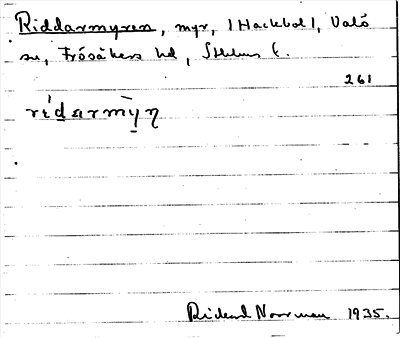 Riddarmyren, myr, (Hackbol), Valö
sn, Frösåkers hd, Sthlms l.
261
ridarmyη
Rickard Norrman 1935.